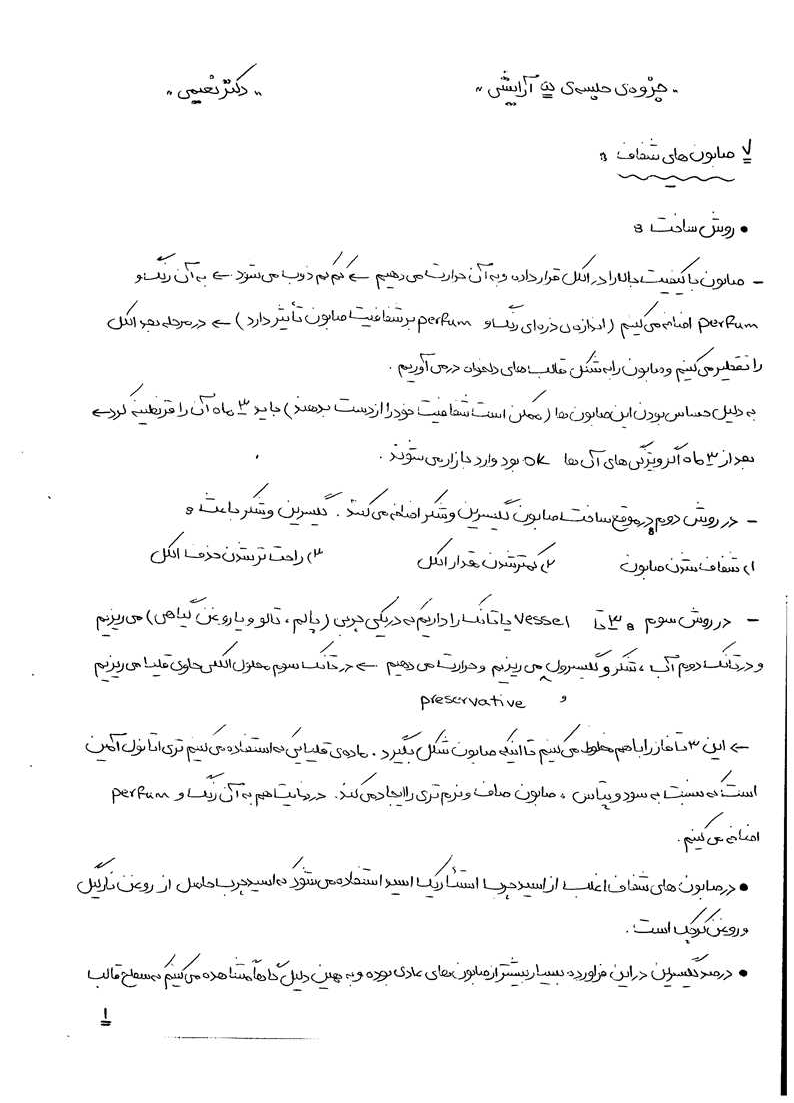 "جزوه‌ی جلسه‌ی ۵ آرایشی" "دکتر نعیمی"
۷ صابون های شفاف :
• روش ساخت :
– صابون با کیفیت بالا را در الکل قرار داده و به آن حرارت می دهیم ← کم کم ذوب می شود ← به آن رنگ و
perfum اضافه می کنیم (اندازه‌ی ذره‌ای رنگ و perfum بر شفافیت صابون تأثیر دارد) ← در مرحله بعد الکل
را تقطیر می کنیم و صابون را به شکل قالب های دلخواه در می آوریم .
به دلیل حساس بودن این صابون ها (ممکن است شفافیت خود را از دست بدهند) باید ۳ ماه آن را قرنطینه کرد ←
بعد از ۳ ماه اگر ویژگی های آن ها ok بود وارد بازار می شوند .
– در روش دوم : در موقع ساخت صابون گلیسرین و شکر اضافه می کنند . گلیسرین و شکر باعث :
۱) شفاف شدن صابون ۲) کمتر شدن مقدار الکل ۳) راحت تر شدن حذف الکل
– در روش سوم : ۳ تا vessel یا تانک را داریم که در یکی چربی (پالم ، تالو و یا روغن گیاهی) می ریزیم
و در تانک دوم آب ، شکر و گلیسرول می ریزیم و حرارت می دهیم ← در تانک سوم محلول الکلی حاوی قلیا می ریزیم
و preservative
← این ۳ تا فاز را با هم مخلوط می کنیم تا اینکه صابون شکل بگیرد . ماده‌ی قلیایی که استفاده می کنیم تری اتانول آمین
است که نسبت به سود و پتاس ، صابون صاف و نرم تری را ایجاد می کند . در نهایت هم به آن رنگ و perfum
اضافه می کنیم .
• در صابون های شفاف اغلب از اسید چرب استئاریک اسید استفاده می شود که اسید چرب حاصل از روغن نارگیل
و روغن کرچک است .
• درصد گلیسرین در این فراورده بسیار بیشتر از صابون های عادی بوده و به همین دلیل گاهاً مشاهده می کنیم که سطح قالب
۱